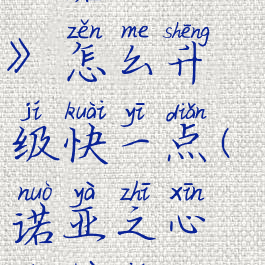 zěn me shēng
》怎么升
jí kuài yī diǎn
级快一点(
nuò yà zhī xīn
诺亚之心